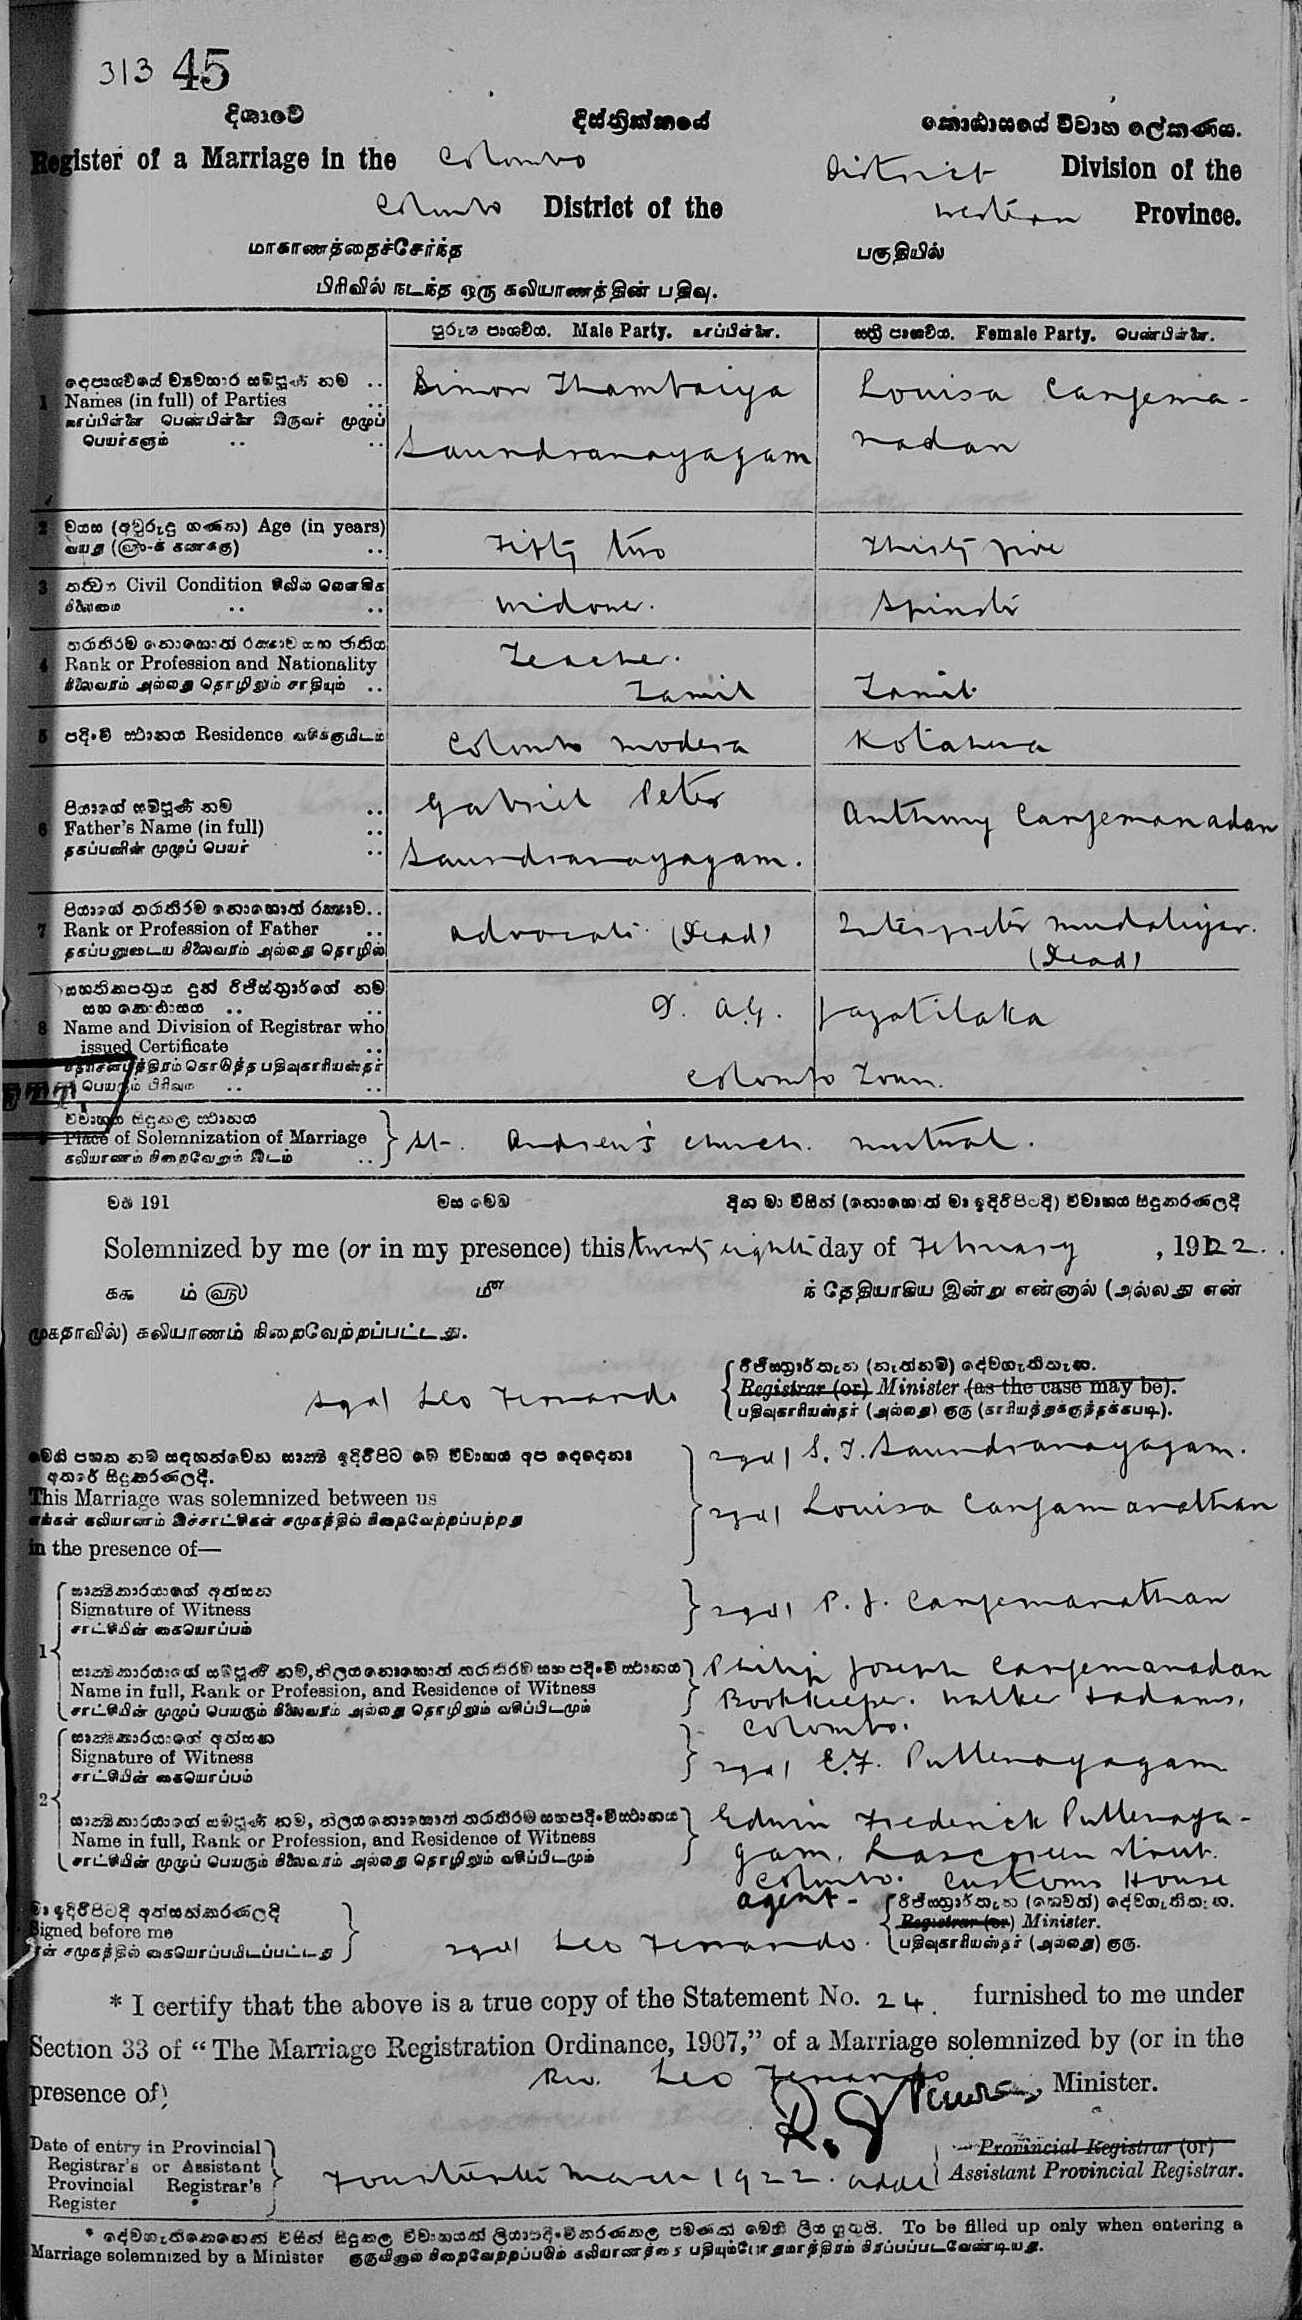 313 45
දිශාවේ දිස්ත්‍රික්කයේ කොඨාසයේ විවාහ ලේකණය.
Register of a Marriage in the Colombo District Division of the
Colombo District of the Western Province.
மாகாணத்தைச்சேர்ந்த பகுதியில்
பிரிவில் நடந்த ஒரு கலியாணத்தின் பதிவு.
පුරුෂ පාශ්වීය. Male Party. மாப்பிள்ளை. ස්ත්‍රී පාශ්වීය. Female Party. பெண்பிள்ளை.
1 Names (in full) of Parties
மாப்பிள்ளை பெண்பிள்ளை இருவர் முழுப்
பெயர்களும்
Simon Thambaiya Saundranayagam
Louisa Canjemanadan
2 වයස (අවුරුදු ගණන) Age (in years)
Fifty two
Thirty five
3 Civil Condition
Widower.
Spinster
4 Rank or Profession and Nationality
நிலைவரம் அல்லது தொழிலும் சாதியும்
Teacher. Tamil
Tamil.
5 පදිංචි ස්ථානය Residence வசிக்குமிடம்
Colombo Modera
Kotahena
6 පියාගේ සම්පූර්ණ නම
Father's Name (in full)
தகப்பனின் முழுப் பெயர்
Gabriel Peter Saundranayagam.
Anthony Canjemanadan
7 Rank or Profession of Father
தகப்பனுடைய நிலைவரம் அல்லது தொழில்
Advocate. (Dead)
Interpreter Mudaliyar. (Dead)
8 Name and Division of Registrar who
issued Certificate
D. A. G. Jayatilaka
Colombo Town.
9 විවාහය සිදුකල ස්ථානය
Place of Solemnization of Marriage
கலியாணம் நிறைவேறும் இடம்
St. Andrew's Church. Mutwal.
වර්ෂ 191 මස මෙම දින මා විසින් (නොහොත් මා ඉදිරිපිටදී) විවාහය සිදුකරණලදී
Solemnized by me (or in my presence) this twenty eighth day of February, 1922.
ந் தேதியாகிய இன்று என்னால் (அல்லது என்
முகதாவில்) கலியாணம் நிறைவேற்றப்பட்டது.
Sgd/ Leo Fernando
Registrar (or) Minister (as the case may be).
பதிவுகாரியஸ்தர் (அல்லது) குரு (காரியத்துக்குத்தக்கபடி).
This Marriage was solemnized between us
எங்கள் கலியாணம் இச்சாட்சிகள் சமுகத்தில் நிறைவேற்றப்பற்றது
in the presence of—
Sgd/ S. T. Saundranayagam.
Sgd/ Louisa Canjamanathan
1 සාක්ෂිකාරයාගේ අත්සන
Signature of Witness
சாட்சியின் கையொப்பம்
Sgd/ P. J. Canjemanathan
Name in full, Rank or Profession, and Residence of Witness
சாட்சியின் முழுப் பெயரும் நிலைவரம் அல்லது தொழிலும் வசிப்பிடமும்
Philip Joseph Canjemanadan
Bookkeeper. Walker & Adams,
Colombo.
2 සාක්ෂිකාරයාගේ අත්සන
Signature of Witness
சாட்சியின் கையொப்பம்
Sgd/ E. F. Pullenayagam
Name in full, Rank or Profession, and Residence of Witness
சாட்சியின் முழுப் பெயரும் நிலைவரம் அல்லது தொழிலும் வசிப்பிடமும்
Edwin Frederick Pullenaya-
gam. Lascoreen Street.
Colombo. Customs House
Agent -
මා ඉදිරිපිටදී අත්සන්කරණලදී
Signed before me
என் சமுகத்தில் கையொப்பமிடப்பட்டது
Sgd/ Leo Fernando.
Registrar (or) Minister.
பதிவுகாரியஸ்தர் (அல்லது) குரு.
* I certify that the above is a true copy of the Statement No. 24. furnished to me under
Section 33 of "The Marriage Registration Ordinance, 1907," of a Marriage solemnized by (or in the
presence of) Rev. Leo Fernando, Minister.
Date of entry in Provincial
Registrar's or Assistant
Provincial Registrar's
Register
Fourteenth March 1922.
Provincial Registrar (or)
Assistant Provincial Registrar.
To be filled up only when entering a
Marriage solemnized by a Minister